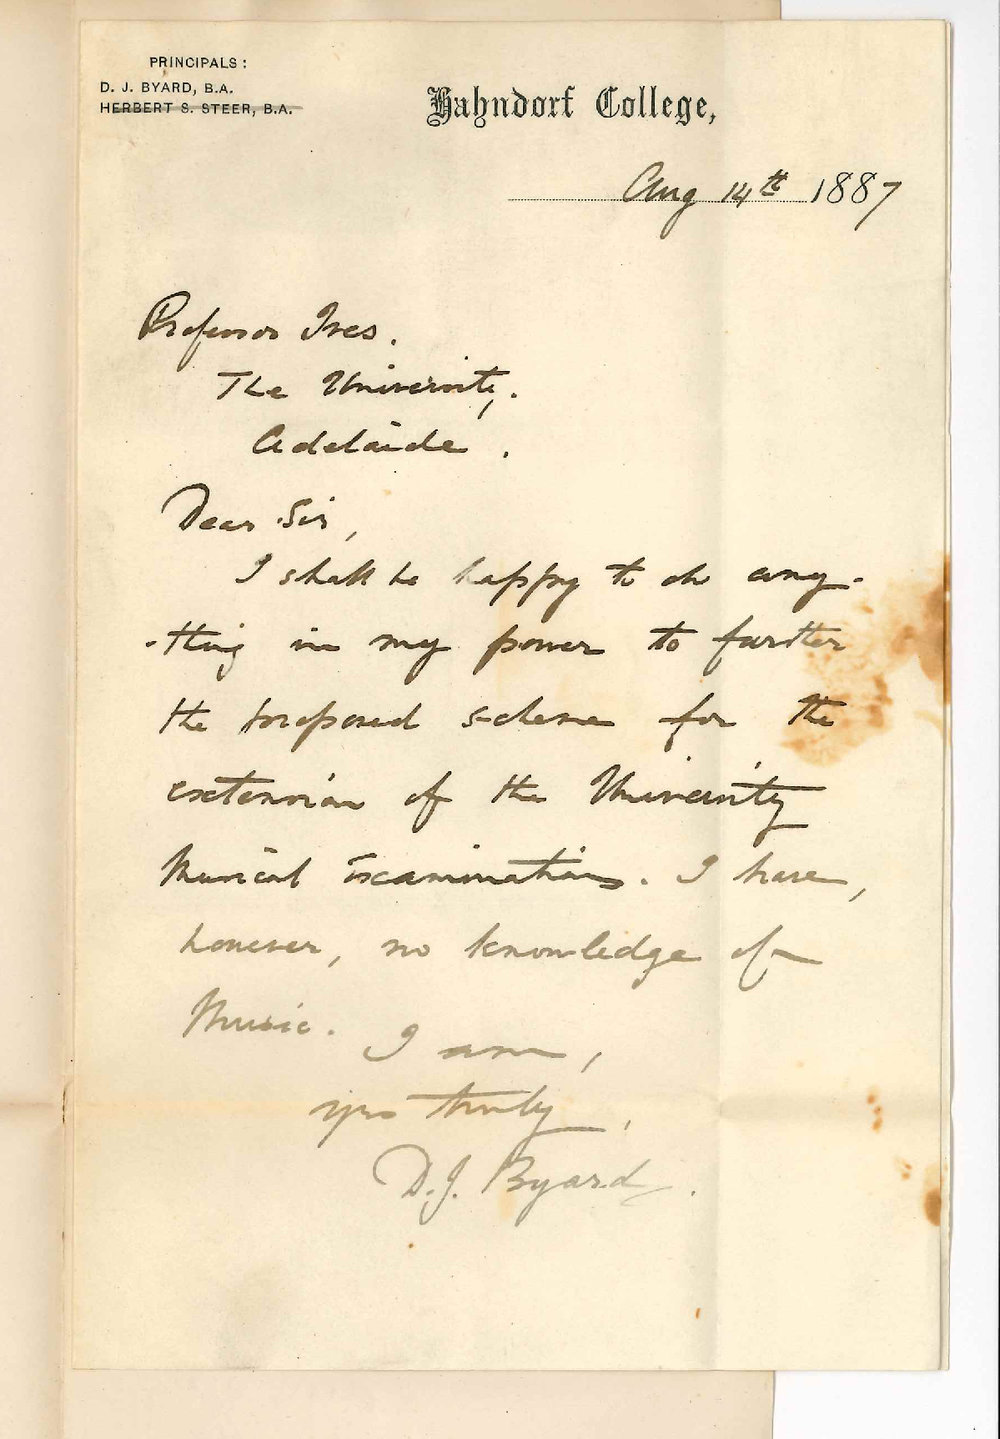 PRINCIPALS:
D. J. BYARD, B.A.
HERBERT S. STEER, B.A.
Hahndorf College,
Aug 14th 1887
Professor Ives.
The University,.
Adelaide.
Dear Sir,
I shall be happy to do any-
-thing in my power to further
the proposed scheme for the
extension of the University
Musical Examinations. I have,
however, no knowledge of
Music.
I am,
yrs truly,
D.J. Byard.